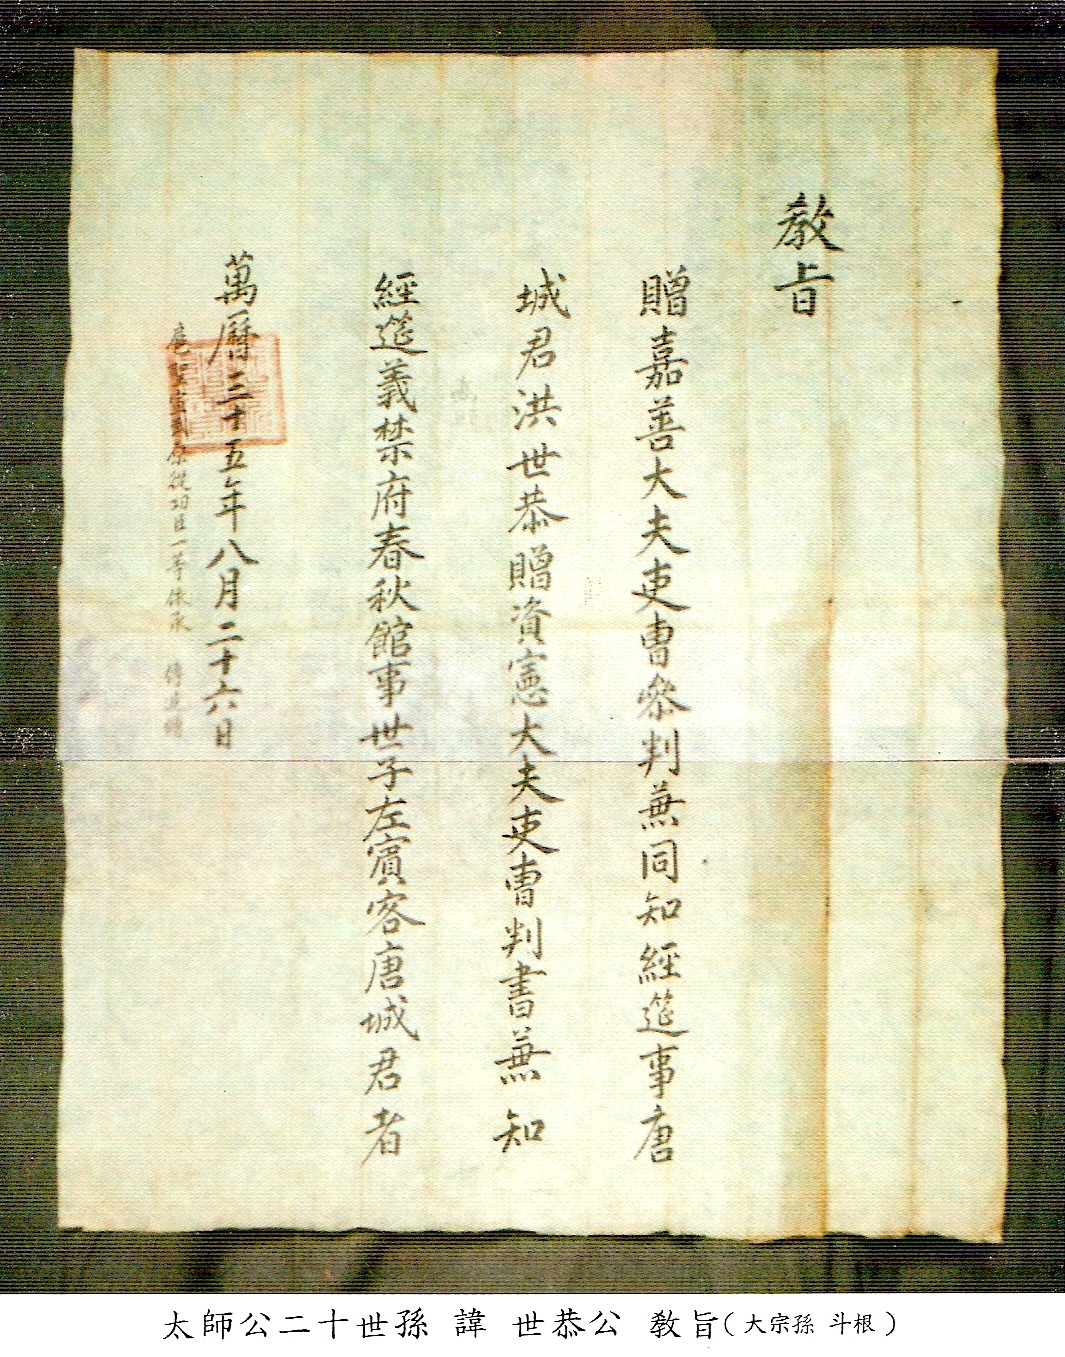 敎旨
贈嘉善大夫吏曹參判兼同知經筵事唐
城君洪世恭贈資憲大夫吏曹判書兼知
經筵義禁府春秋館事世子左賓客唐城君者
萬曆三十五年八月二十六日
從功臣一等
太師公二十世孫 諱 世恭公 敎旨(大宗孫 斗根)